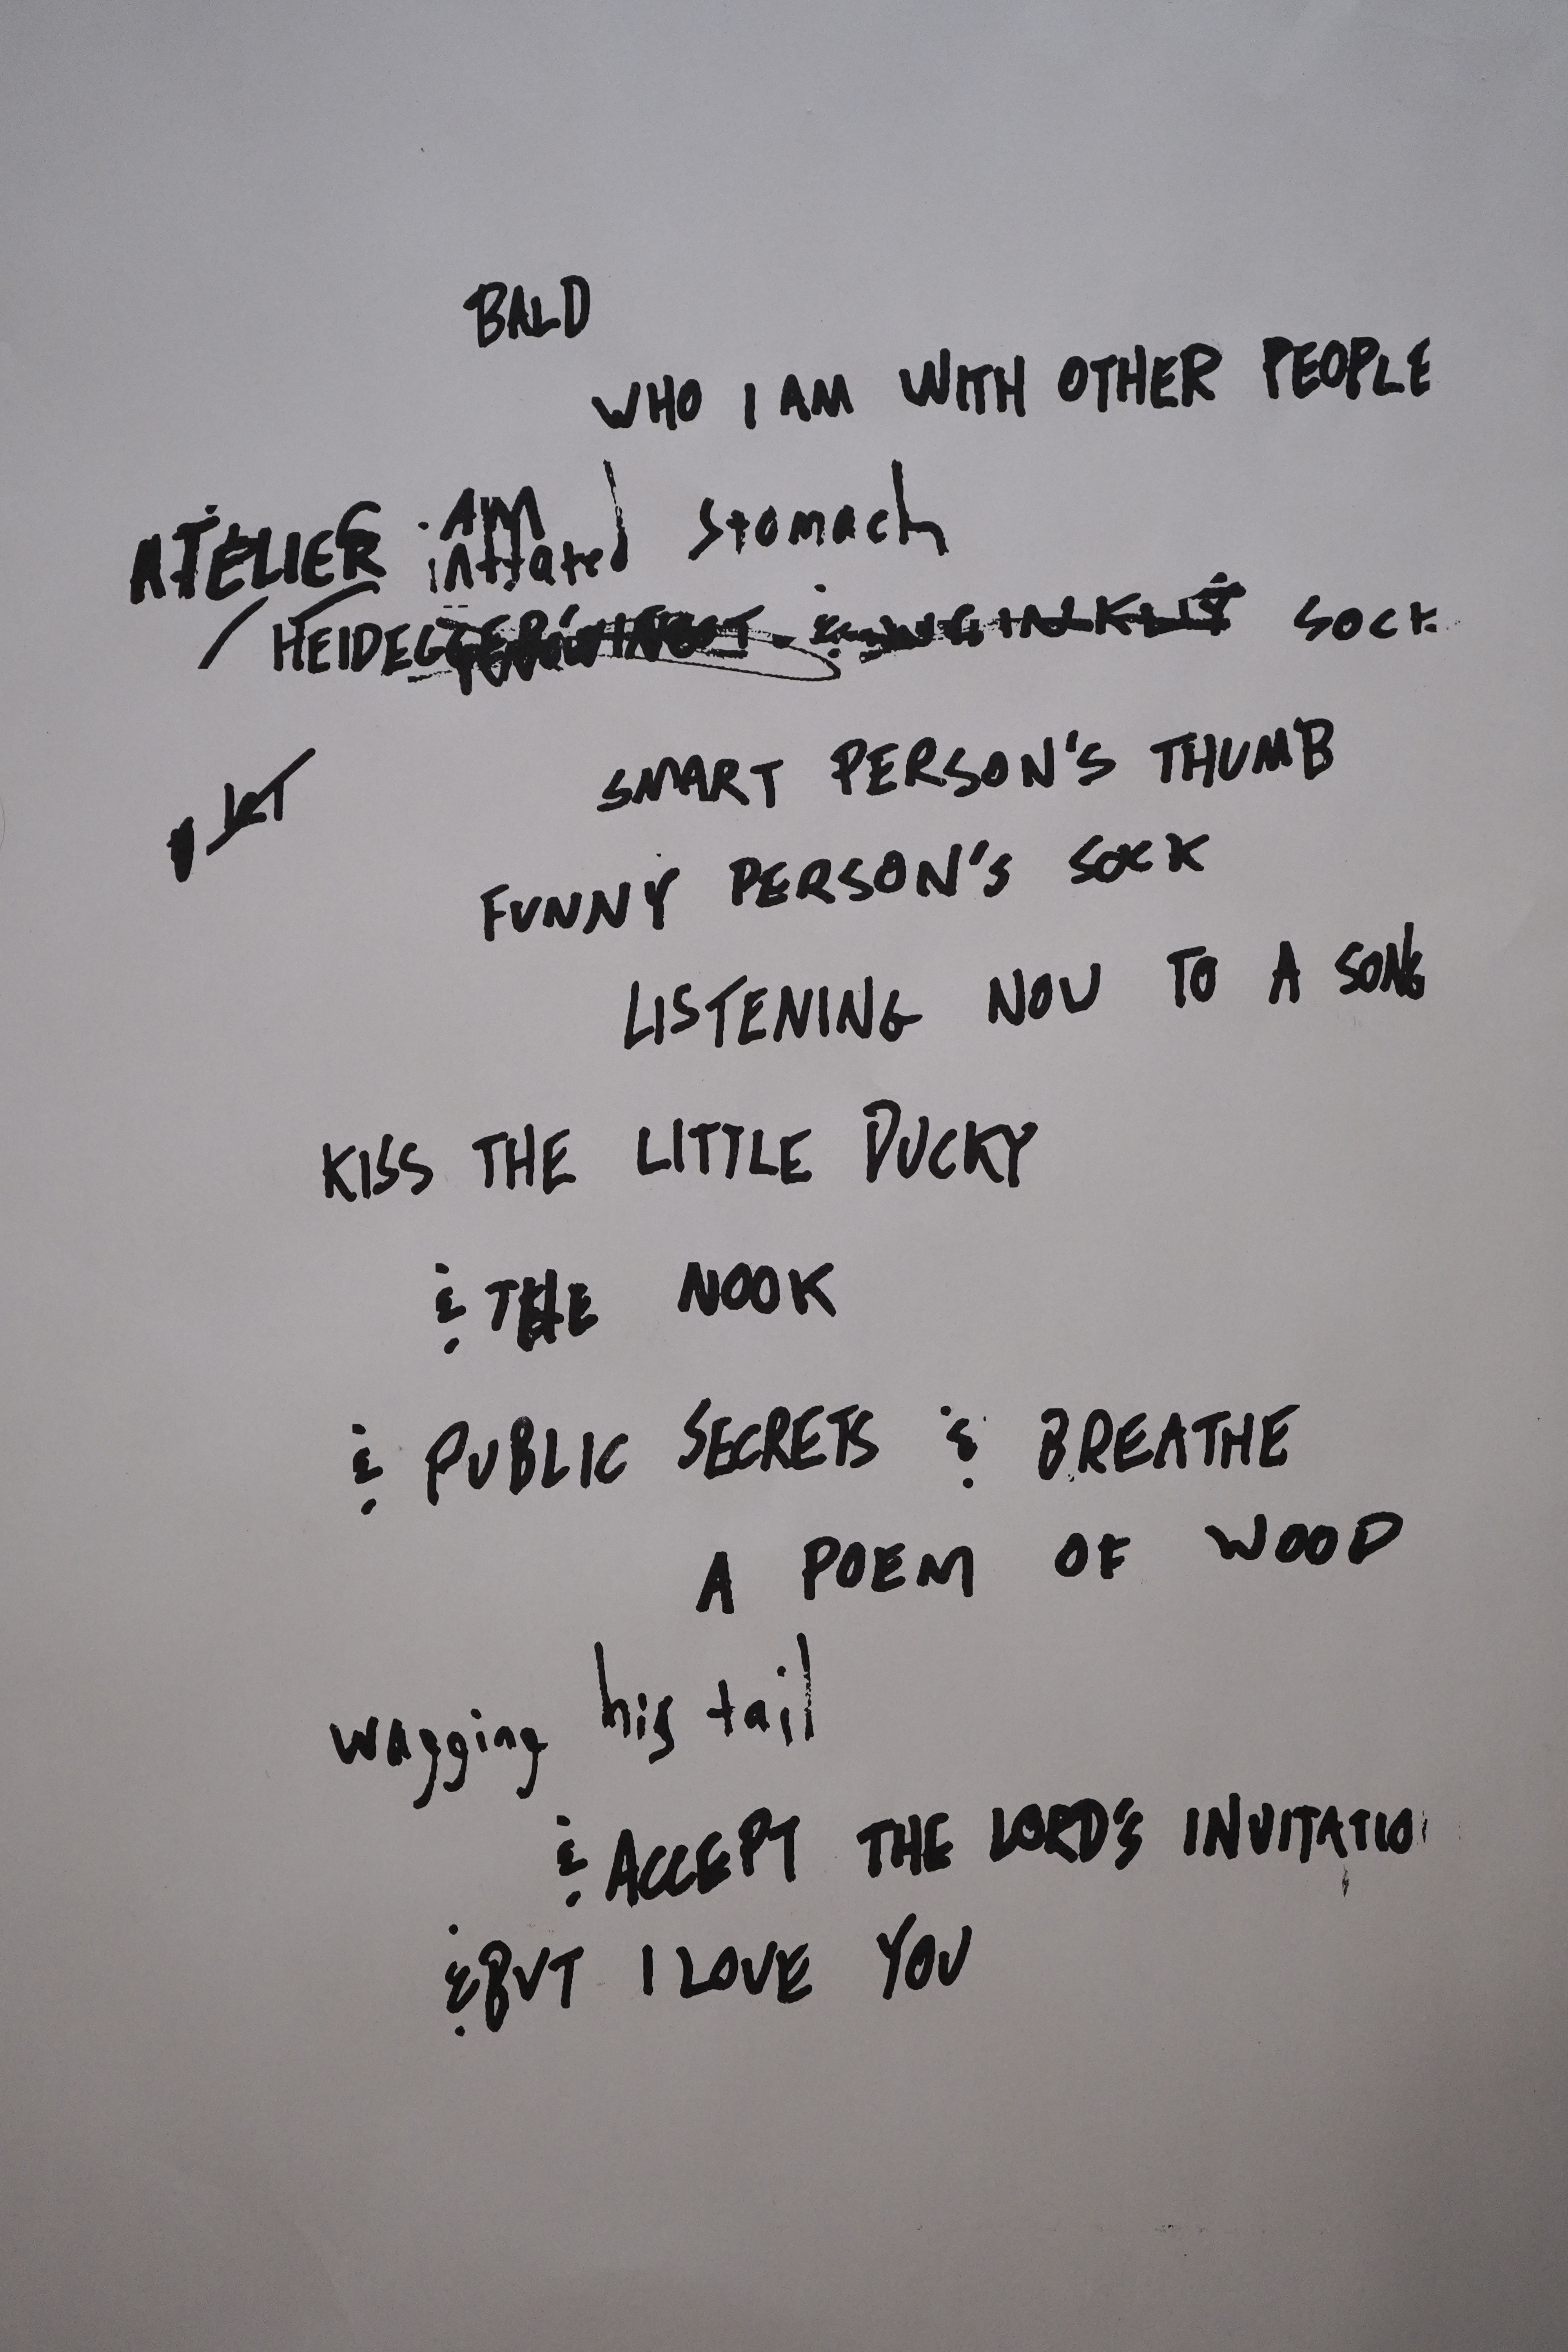 BALD
WHO I AM WITH OTHER PEOPLE
ATELIER AM
stomach
HEIDEGGER SOCK
SMART PERSON'S THUMB
FUNNY PERSON'S SOCK
LISTENING NOW TO A SONG
KISS THE LITTLE DUCKY
& THE NOOK
& PUBLIC SECRETS & BREATHE
A POEM OF WOOD
wagging his tail
& ACCEPT THE LORD'S INVITATIO
& BUT I LOVE YOU